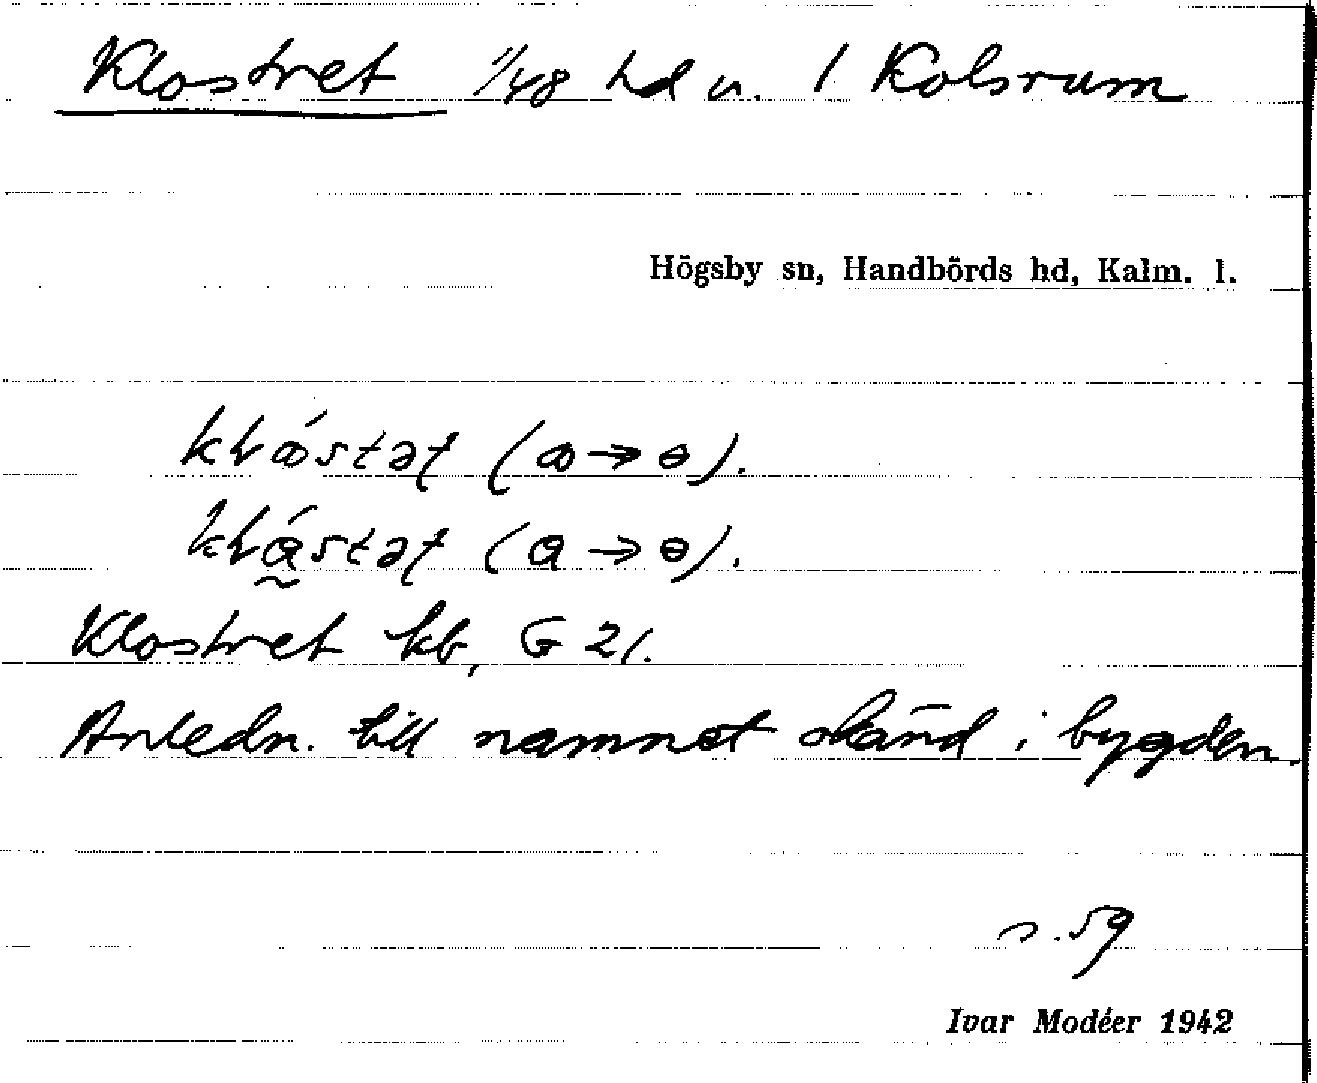 Klostret 1/48 hd u. 1 Kolsrum
Högsby sn, Handbörds hd, Kalm. l.
(ꝏ → ɵ).
(a → ɵ).
Klostret kb, G 21.
Anledn. till namnet okänd i bygden.
s. 59
Ivar Modéer 1942